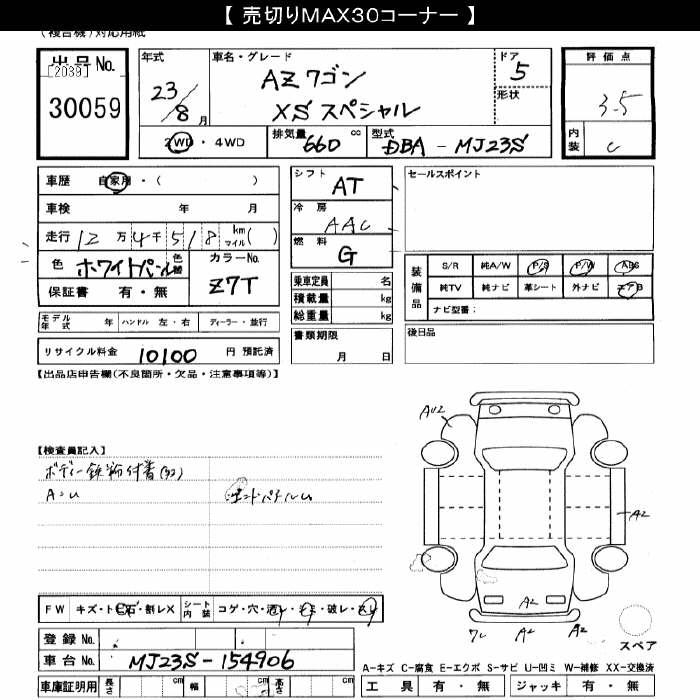 【 売切りMAX30コーナー 】
(複合機)対応用紙
出品 No.
[2039]
30059
年式
23/8月
車名・グレード
AZワゴン
XSスペシャル
ドア
5
形状
評価点
3.5
内装
C
2WD・4WD
排気量 660 cc
型式 DBA-MJ23S
車歴 自家用・( )
車検 年 月
走行 12万4千518 km マイル( )
色 ホワイトパール 色替
カラーNo.
Z7T
保証書 有・無
シフト
AT
冷房
AAC
燃料
G
乗車定員 名
積載量 kg
総重量 kg
書類期限
月 日
セールスポイント
装備品
S/R 純A/W P/S P/W ABS
純TV 純ナビ 革シート 外ナビ エアB
ナビ型番:
後日品
モデル年式 年 ハンドル 左・右 ディーラー・並行
リサイクル料金 10100 円 預託済
【出品店申告欄(不良箇所・欠品・注意事項等)】
【検査員記入】
ボディー鉄粉付着
A=U
AU2
A2
A2
A2
A2
スペア
FW キズ・ト石・割レX
シート内装 コゲ・穴・汚レ・シミ・破レ・スレ
登録 No.
車台 No. MJ23S-154906
車庫証明用 長さ cm 幅 cm 高さ cm
A-キズ C-腐食 E-エクボ S-サビ U-凹ミ W-補修 XX-交換済
工具 有・無 ジャッキ 有・無